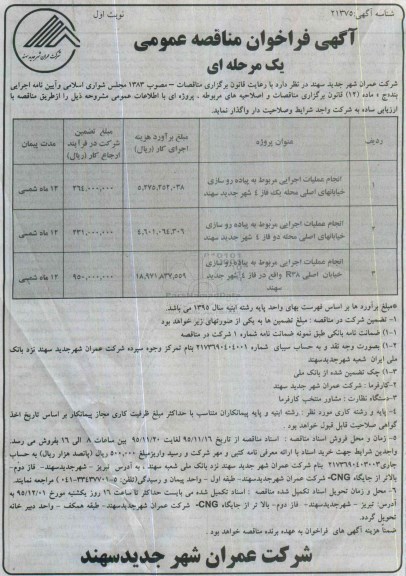 شناسه آگهی: ۲۱۳۷۵
نوبت اول
شرکت عمران شهر جدید سهند
آگهی فراخوان مناقصه عمومی
یک مرحله ای
شرکت عمران شهر جدید سهند در نظر دارد با رعایت قانون برگزاری مناقصات – مصوب ۱۳۸۳ مجلس شورای اسلامی وآیین نامه اجرایی
بند«ج» ماده (۱۲) قانون برگزاری مناقصات و اصلاحیه های مربوطه ، پروژه ای با اطلاعات عمومی مشروحه ذیل را ازطریق مناقصه با
ارزیابی ساده به شرکت واجد شرایط وصلاحیت دار واگذار نماید.
ردیف
عنوان پروژه
مبلغ برآورد هزینه اجرای کار (ریال)
مبلغ تضمین شرکت در فرآیند ارجاع کار (ریال)
مدت پیمان
۱
انجام عملیات اجرایی مربوط به پیاده رو سازی
خیابانهای اصلی محله یک فاز ٤ شهر جدید سهند
۵,۲۷۵,۲۵۲,۰۳۸
۲۶۴,۰۰۰,۰۰۰
۱۲ ماه شمسی
۲
انجام عملیات اجرایی مربوط به پیاده رو سازی
خیابانهای اصلی محله دو فاز ٤ شهر جدید سهند
۴,۶۰۱,۰۶۴,۳۰۶
۲۳۱,۰۰۰,۰۰۰
۱۲ ماه شمسی
۳
انجام عملیات اجرایی مربوط به پیاده رو سازی
خیابان اصلی R۳۸ واقع در فاز ٤ شهر جدید
سهند
۱۸,۹۷۱,۸۳۷,۵۵۹
۹۵۰,۰۰۰,۰۰۰
۱۲ ماه شمسی
*مبلغ برآورد ها بر اساس فهرست بهای واحد پایه رشته ابنیه سال ۱۳۹۵ می باشد.
۱- تضمین شرکت در مناقصه : مبلغ تضمین ها به یکی از صورتهای زیر خواهد بود
۱-۱) ضمانت نامه بانکی طبق نمونه ضمانت نامه شماره ۱ شرکت در مناقصه
۲-۱) بصورت وجه نقد و به حساب سیبای شماره ۲۱۷۳۶۹۰۴۰۴۰۰۱ بنام تمرکز وجوه سپرده شرکت عمران شهرجدید سهند نزد بانک
ملی ایران شعبه شهرجدیدسهند
۳-۱) چک تضمین شده از بانک ملی
۲-کارفرما : شرکت عمران شهر جدید سهند
۳-دستگاه نظارت : مشاور منتخب کارفرما
۴- پایه و رشته کاری مورد نظر : رشته ابنیه و پایه پیمانکاران متناسب با حداکثر مبلغ ظرفیت کاری مجاز پیمانکار بر اساس تاریخ اخذ
گواهی صلاحیت قابل قبول خواهد بود .
۵- زمان و محل فروش اسناد مناقصه : اسناد مناقصه از تاریخ ۹۵/۱۱/۱۶ لغایت ۹۵/۱۱/۲۰ بین ساعات ۸ الی ۱۶ بفروش می رسد.
واجدین شرایط جهت خرید اسناد با ارائه معرفی نامه کتبی و مهر شرکت و رسید واریزمبلغ ۵۰۰,۰۰۰ ریال (پانصد هزار ریال) به حساب
جاری۲۱۷۳۶۹۰۴۰۳۰۰۳ بنام شرکت عمران شهر جدید سهند نزد بانک ملی شعبه سهند ، به آدرس تبریز – شهرجدیدسهند- فاز دوم-
بالاتر از جایگاه CNG- شرکت عمران شهرجدیدسهند- طبقه اول – واحد پیمان و رسیدگی(تلفن: ۵-۳۳۴۳۷۷۰۱-۰۴۱) مراجعه نمایند.
۶- محل و زمان تحویل اسناد تکمیل شده مناقصه : اسناد تکمیل شده می بایست حداکثر تا ساعت ۱۶ روز یکشنبه مورخ ۹۵/۱۲/۰۱ به
آدرس: تبریز – شهرجدیدسهند- فاز دوم- بالا تر از جایگاه CNG- شرکت عمران شهرجدیدسهند- طبقه همکف – واحد دبیر خانه
تحویل گردد.
ضمنا هزینه آگهی های فراخوان به عهده برنده مناقصه خواهد بود .
شرکت عمران شهر جدیدسهند